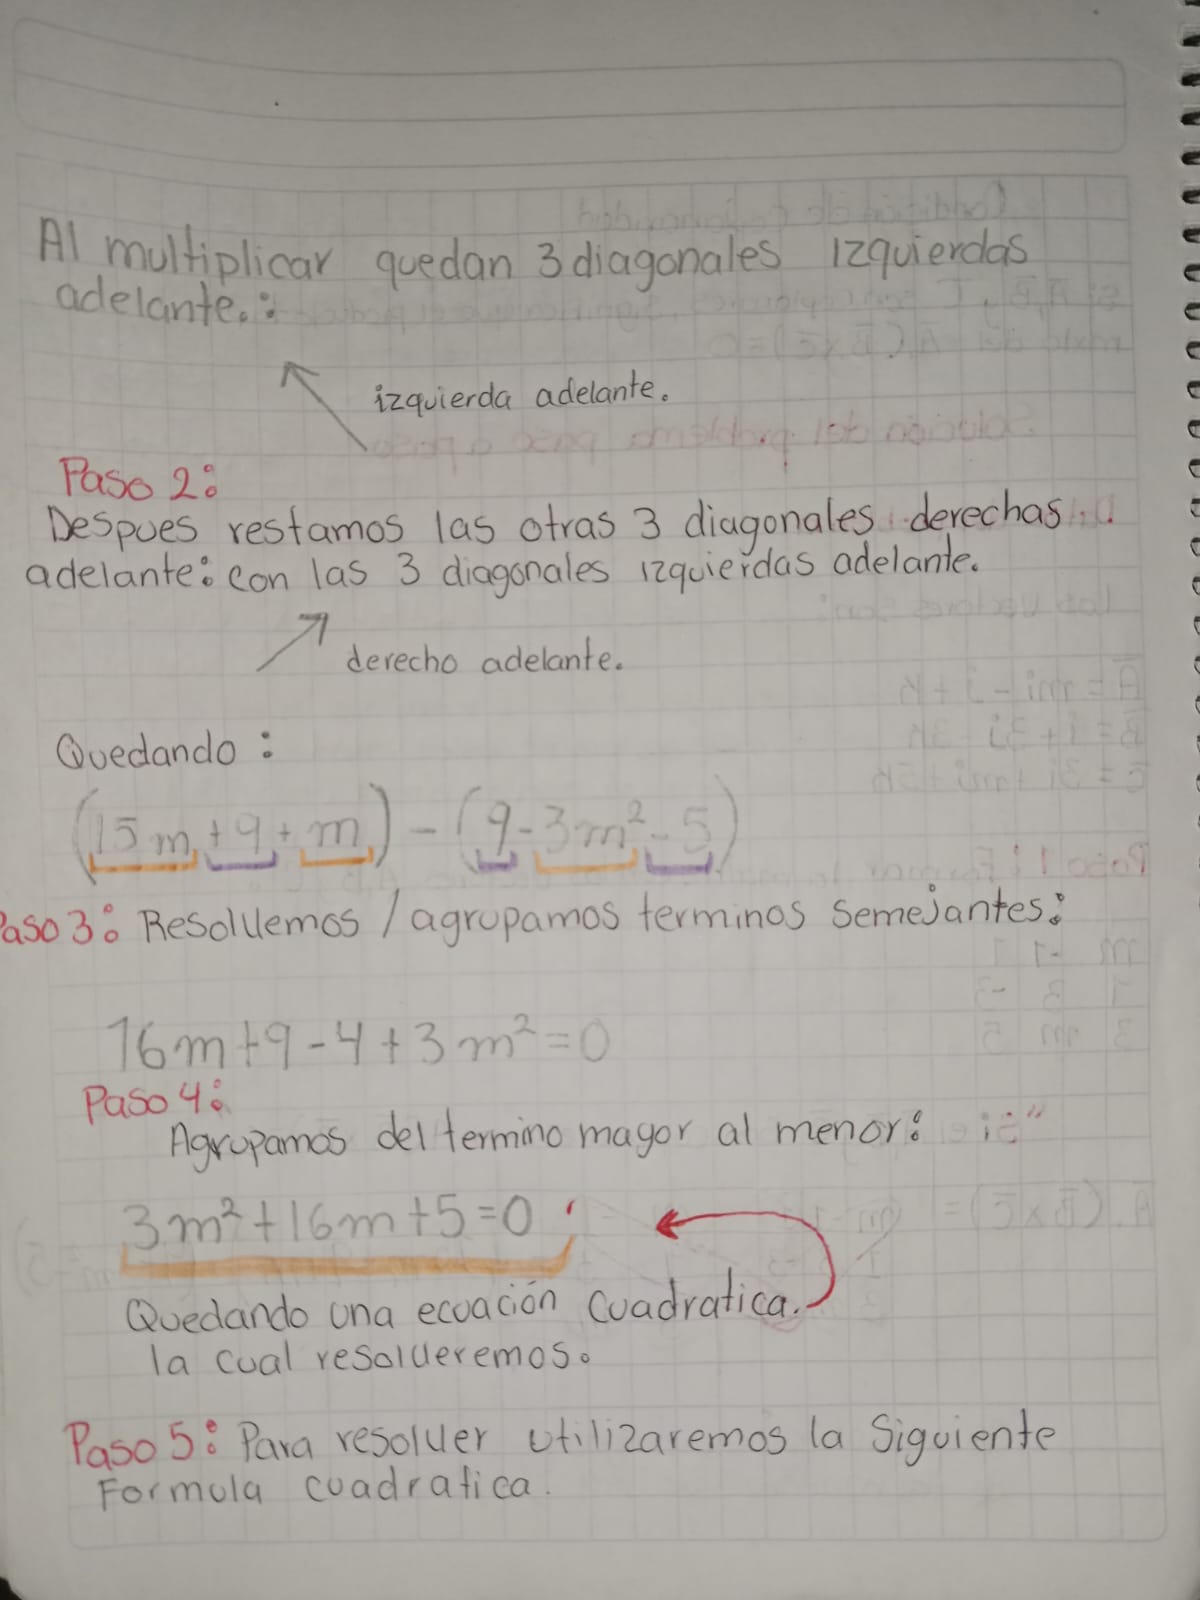 Al multiplicar quedan 3 diagonales izquierdas
adelante.:
izquierda adelante.
Paso 2:
Despues restamos las otras 3 diagonales derechas
adelante: con las 3 diagonales izquierdas adelante.
derecho adelante.
Quedando:
(15m+9+m)-(9-3m²-5)
Paso 3: Resolvemos/agrupamos terminos semejantes:
16m+9-4+3m²=0
Paso 4:
Agrupamos del termino mayor al menor:
3m²+16m+5=0
Quedando una ecuación cuadratica.
la cual resolveremos.
Paso 5: Para resolver utilizaremos la siguiente
Formula cuadratica.